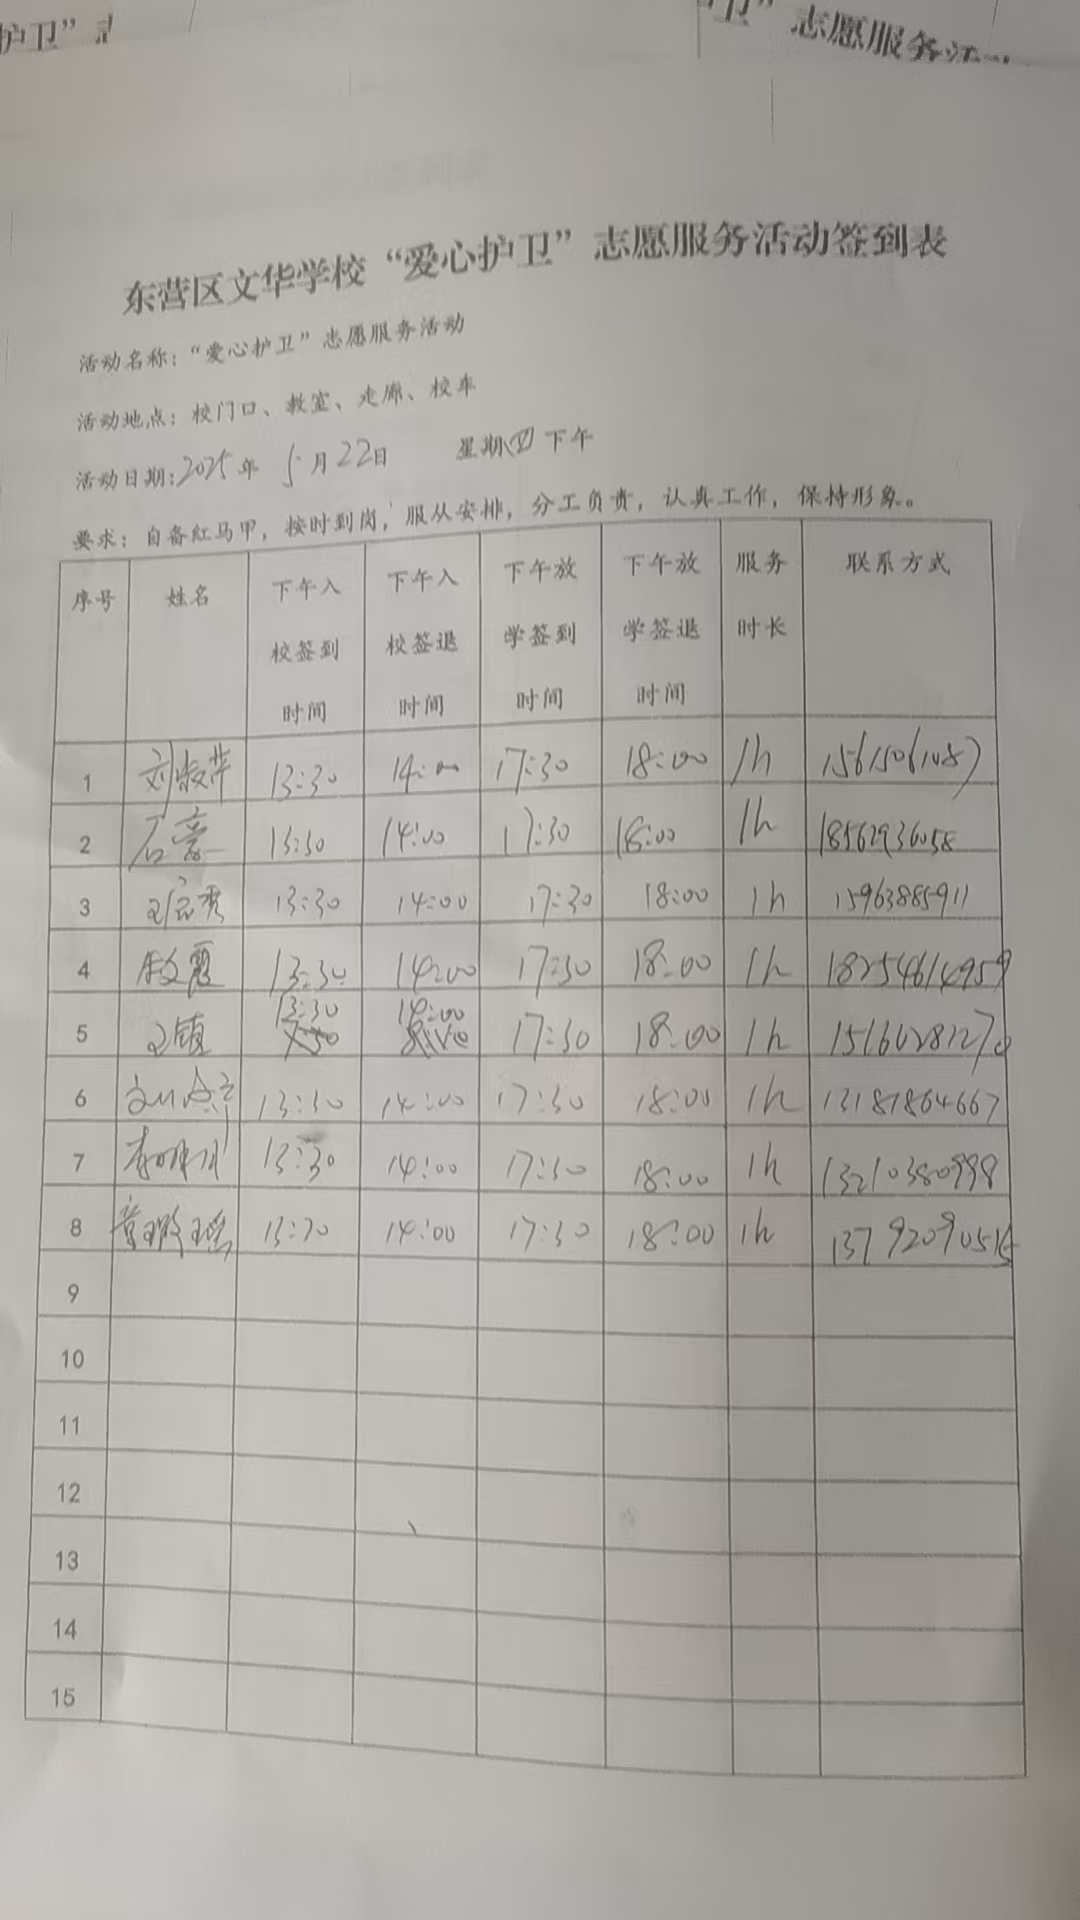 护卫”志
卫”志愿服务活
东营区文华学校“爱心护卫”志愿服务活动签到表
活动名称：“爱心护卫”志愿服务活动
活动地点：校门口、教室、走廊、校车
活动日期:2025年 5月22日 星期四下午
要求：自备红马甲，按时到岗，服从安排，分工负责，认真工作，保持形象。
序号 姓名 下午入校签到时间 下午入校签退时间 下午放学签到时间 下午放学签退时间 服务时长 联系方式
1 13:30 14:00 17:30 18:00 1h 15615061087
2 石蒙 13:30 14:00 17:30 18:00 1h 18562936058
3 13:30 14:00 17:30 18:00 1h 15963885911
4 13:30 14:00 17:30 18:00 1h 18254614959
5 13:30 14:00 17:30 18:00 1h
6 13:30 14:00 17:30 18:00 1h 13181864667
7 13:30 14:00 17:30 18:00 1h 13210380998
8 13:30 14:00 17:30 18:00 1h
9
10
11
12
13
14
15